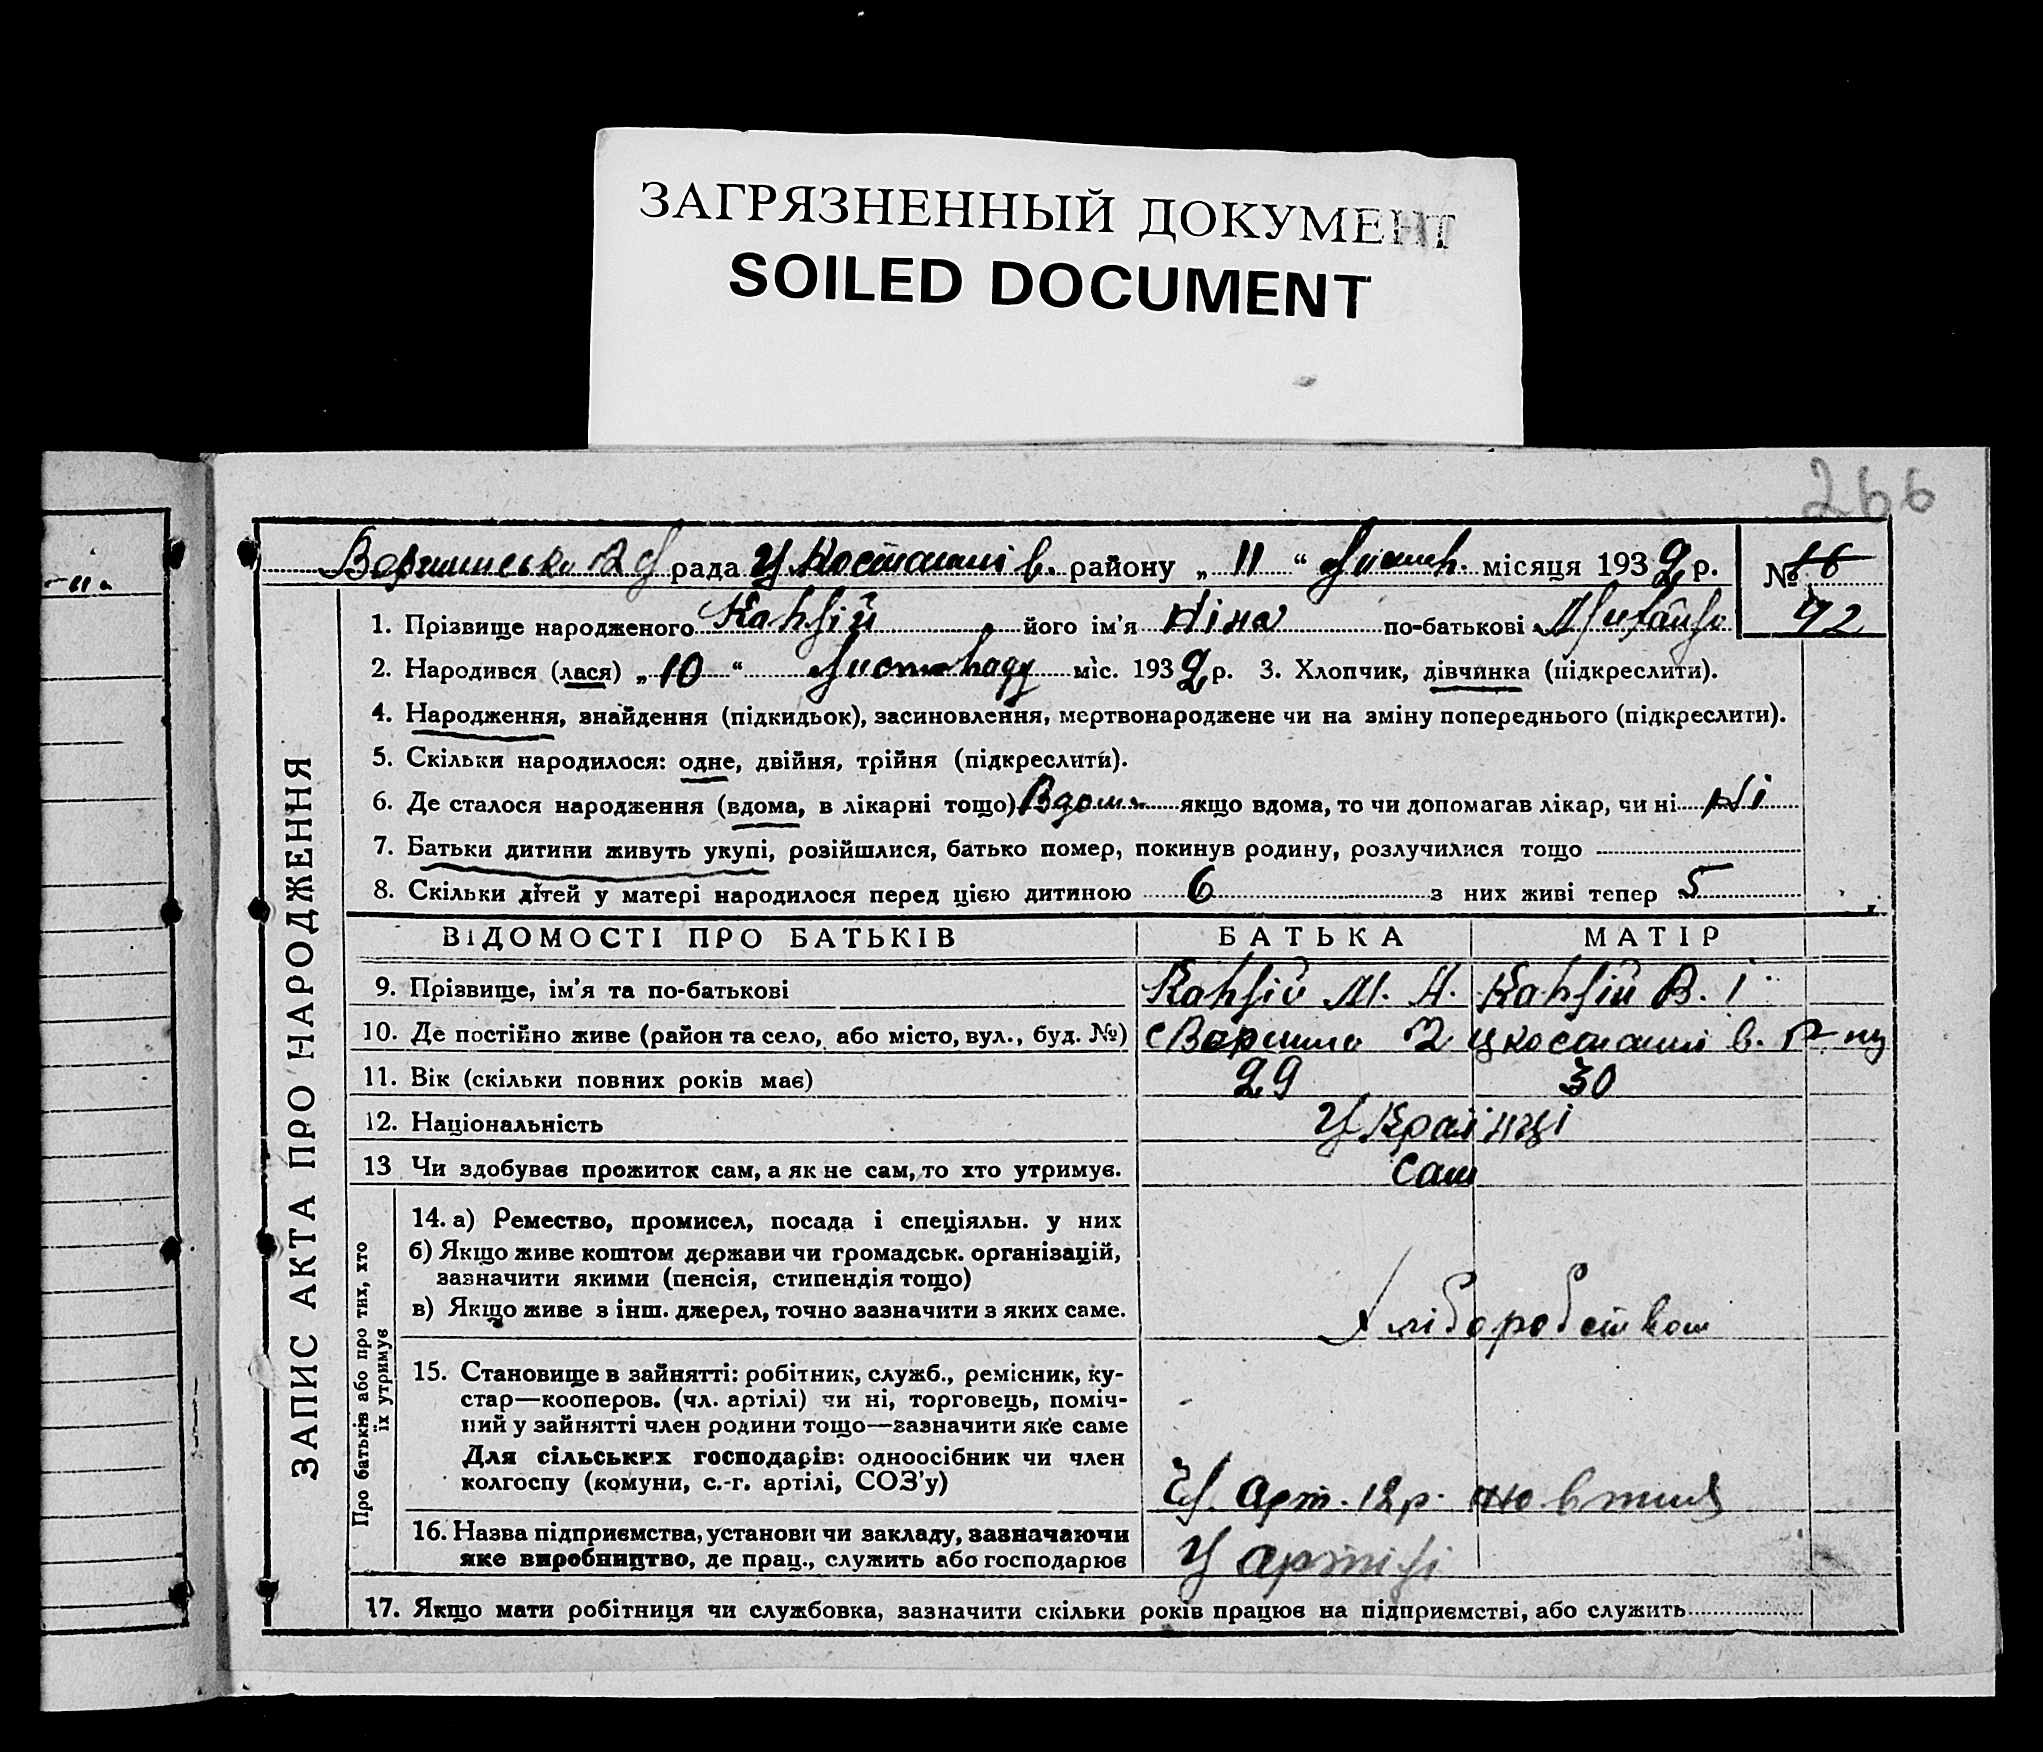 ЗАГРЯЗНЕННЫЙ ДОКУМЕНТ
SOILED DOCUMENT
266
рада району „ 11 “ місяця 1932 р. № 16
92
1. Прізвище народженого його ім'я Ніна по-батькові
2. Народився (лася) „ 10 “ Листопаду міс. 1932 р. 3. Хлопчик, дівчинка (підкреслити).
4. Народження, знайдення (підкидьок), засиновлення, мертвонароджене чи на зміну попереднього (підкреслити).
5. Скільки народилося: одне, двійня, трійня (підкреслити).
6. Де сталося народження (вдома, в лікарні тощо) Вдома якщо вдома, то чи допомагав лікар, чи ні Ні
7. Батьки дитини живуть укупі, розійшлися, батько помер, покинув родину, розлучилися тощо
8. Скільки дітей у матері народилося перед цією дитиною 6 з них живі тепер 5
ЗАПИС АКТА ПРО НАРОДЖЕННЯ
ВІДОМОСТІ ПРО БАТЬКІВ БАТЬКА МАТІР
9. Прізвище, ім'я та по-батькові М. Н. В. І
10. Де постійно живе (район та село, або місто, вул., буд. №)
11. Вік (скільки повних років має) 29 30
12. Національність Українці
13 Чи здобуває прожиток сам, а як не сам, то хто утримує. Сам
Про батьків або про тих, хто
їх утримує
14. а) Ремество, промисел, посада і спеціяльн. у них
б) Якщо живе коштом держави чи громадськ. організацій,
зазначити якими (пенсія, стипендія тощо)
в) Якщо живе з інш. джерел, точно зазначити з яких саме. Хліборобством
15. Становище в зайнятті: робітник, служб., ремісник, ку-
стар—кооперов. (чл. артілі) чи ні, торговець, поміч-
ний у зайнятті член родини тощо—зазначити яке саме
Для сільських господарів: одноосібник чи член
колгоспу (комуни, с.-г. артілі, СОЗ'у) Чл. арт. 12 р. жовтня
16. Назва підприємства, установи чи закладу, зазначаючи
яке виробництво, де прац., служить або господарює У артілі
17. Якщо мати робітниця чи службовка, зазначити скільки років працює на підприємстві, або служить